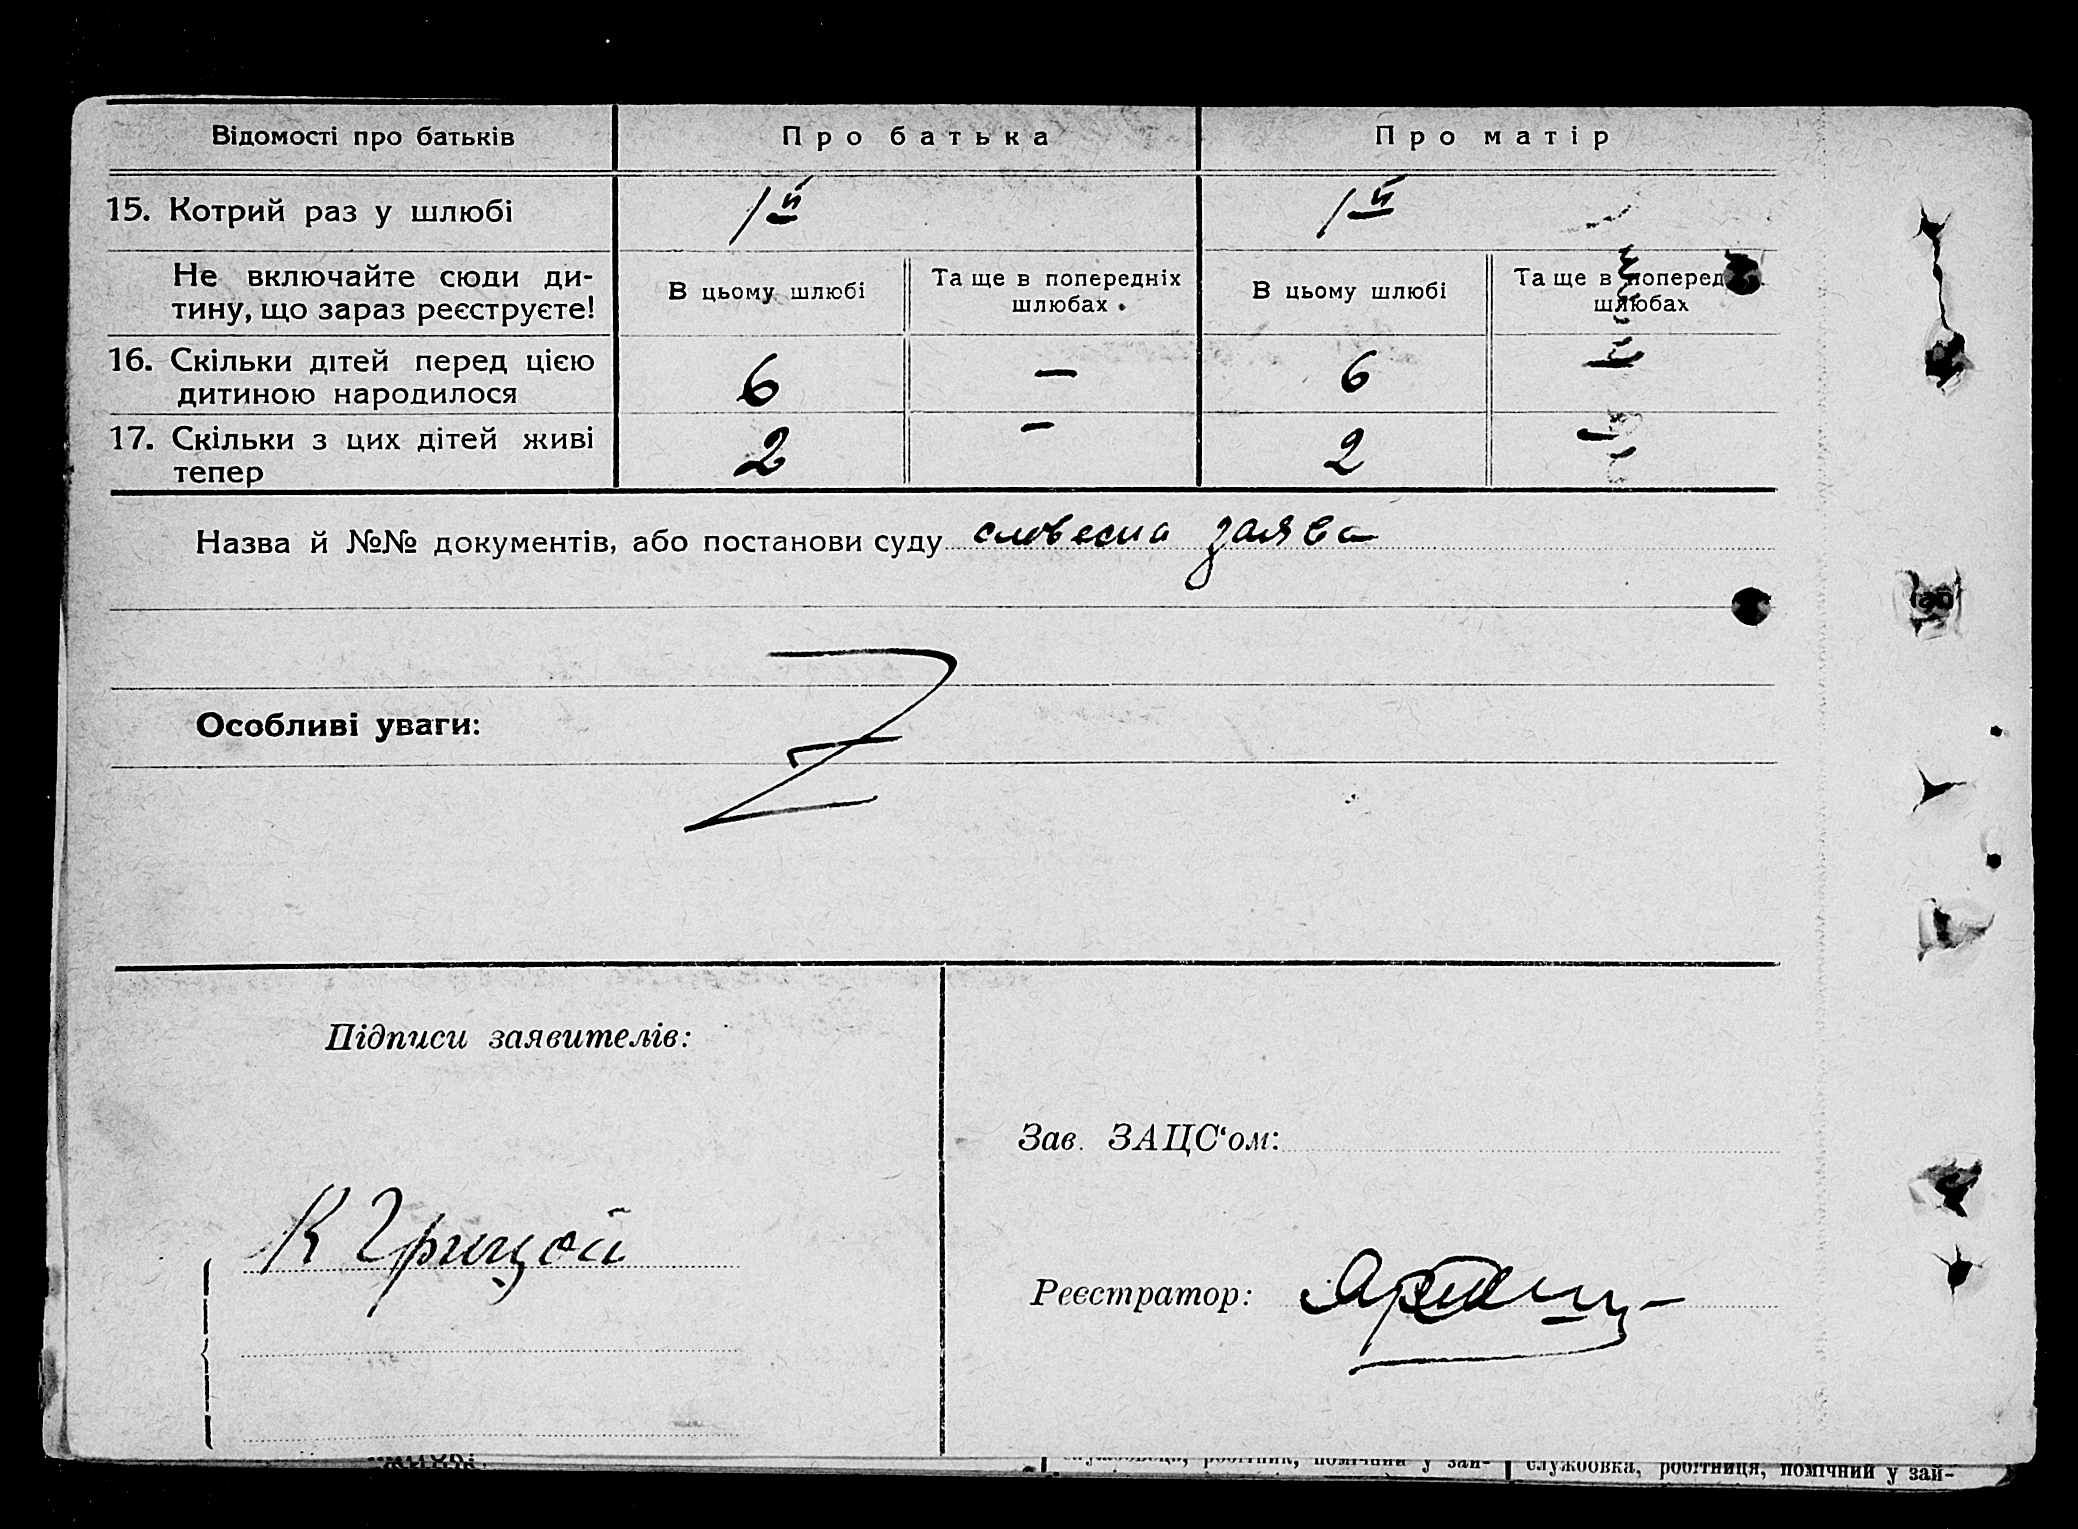 Відомості про батьків Про батька Про матір
15. Котрий раз у шлюбі 1й 1й
Не включайте сюди ди-
тину, що зараз реєструєте!
В цьому шлюбі Та ще в попередніх
шлюбах
В цьому шлюбі Та ще в поперед
шлюбах
16. Скільки дітей перед цією
дитиною народилося
6 — 6 —
17. Скільки з цих дітей живі
тепер
2 — 2 —
Назва й №№ документів, або постанови суду словесна заява
Особливі уваги:
Підписи заявителів:
Зав. ЗАЦС‘ом:
К Грицай
Реєстратор:
робітник, помічний у зай-
службовка, робітниця, помічний у зай-